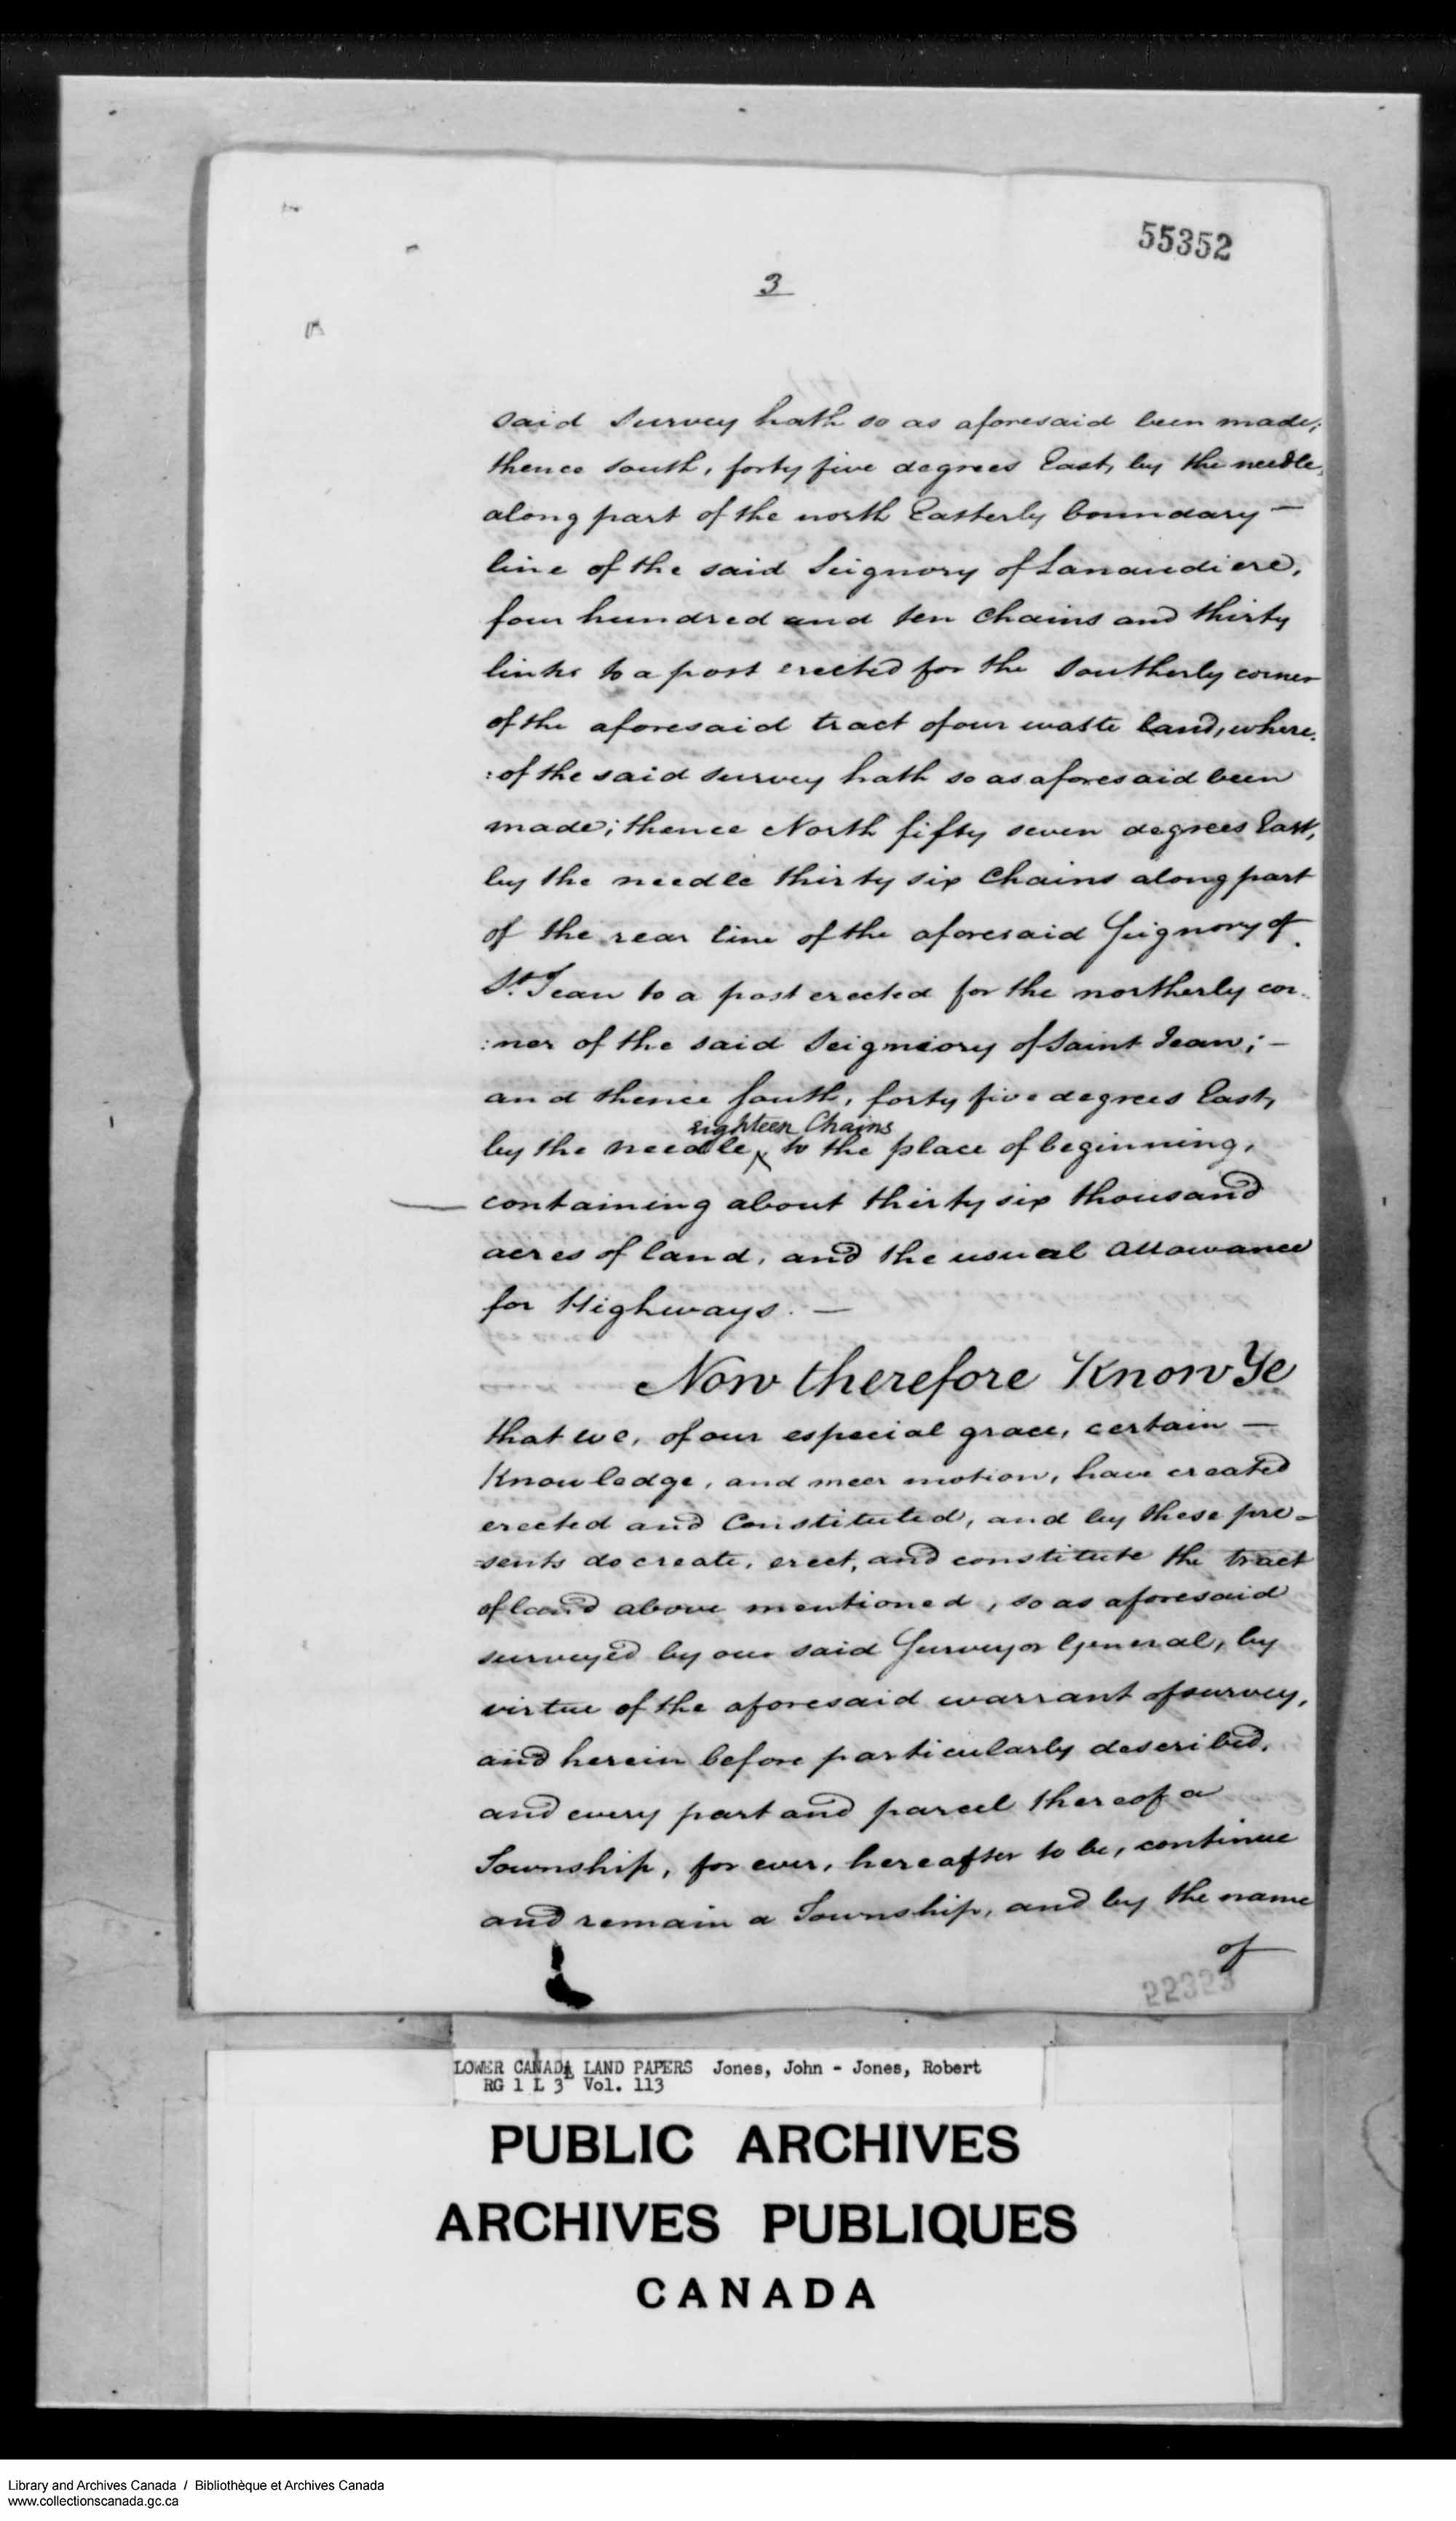 55352
3
said Survey hath so as aforesaid been made;
thence south, forty five degrees East, by the needle,
along part of the north Easterly boundary —
line of the said Seignory of Lanaudiere,
four hundred and ten Chains and thirty
links to a post erected for the Southerly corner
of the aforesaid tract of our waste land, where
: of the said survey hath so as aforesaid been
made; thence North fifty seven degrees East,
by the needle thirty six Chains along part
of the rear line of the aforesaid Seignory of
St. Jean to a post erected for the northerly cor
:ner of the said Seigniory of Saint Jean; —
and thence South, forty five degrees East,
eighteen Chains
by the needle, to the place of beginning,
containing about thirty six thousand
acres of land, and the usual allowance
for Highways. —
Now therefore Know Ye
that we, of our especial grace, certain —
Knowledge, and meer motion, have created
erected and Constituted, and by these pre-
-sents do create, erect, and constitute the tract
of land above mentioned, so as aforesaid
surveyed by our said Surveyor General, by
virtue of the aforesaid warrant of survey,
and herein before particularly described,
and every part and parcel thereof a
Township, for ever, hereafter to be, continue
and remain a Township, and by the name
of
22323
LOWER CANADA LAND PAPERS Jones, John - Jones, Robert
RG 1 L 3 Vol. 113
PUBLIC ARCHIVES
ARCHIVES PUBLIQUES
CANADA
Library and Archives Canada / Bibliothèque et Archives Canada
www.collectionscanada.gc.ca